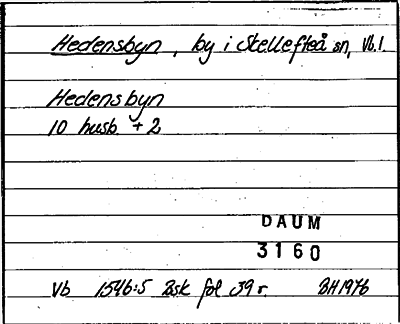 Hedensbyn, by i Skellefteå sn, Vb.l.
Hedensbyn
10 husb. + 2
DAUM
3160
Vb 1546:5 Bsk fol 39 r. BH 1976